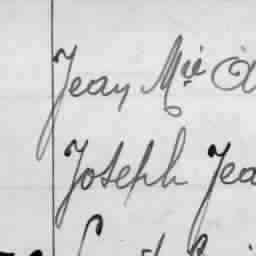 Jean Mie
Joseph Jea